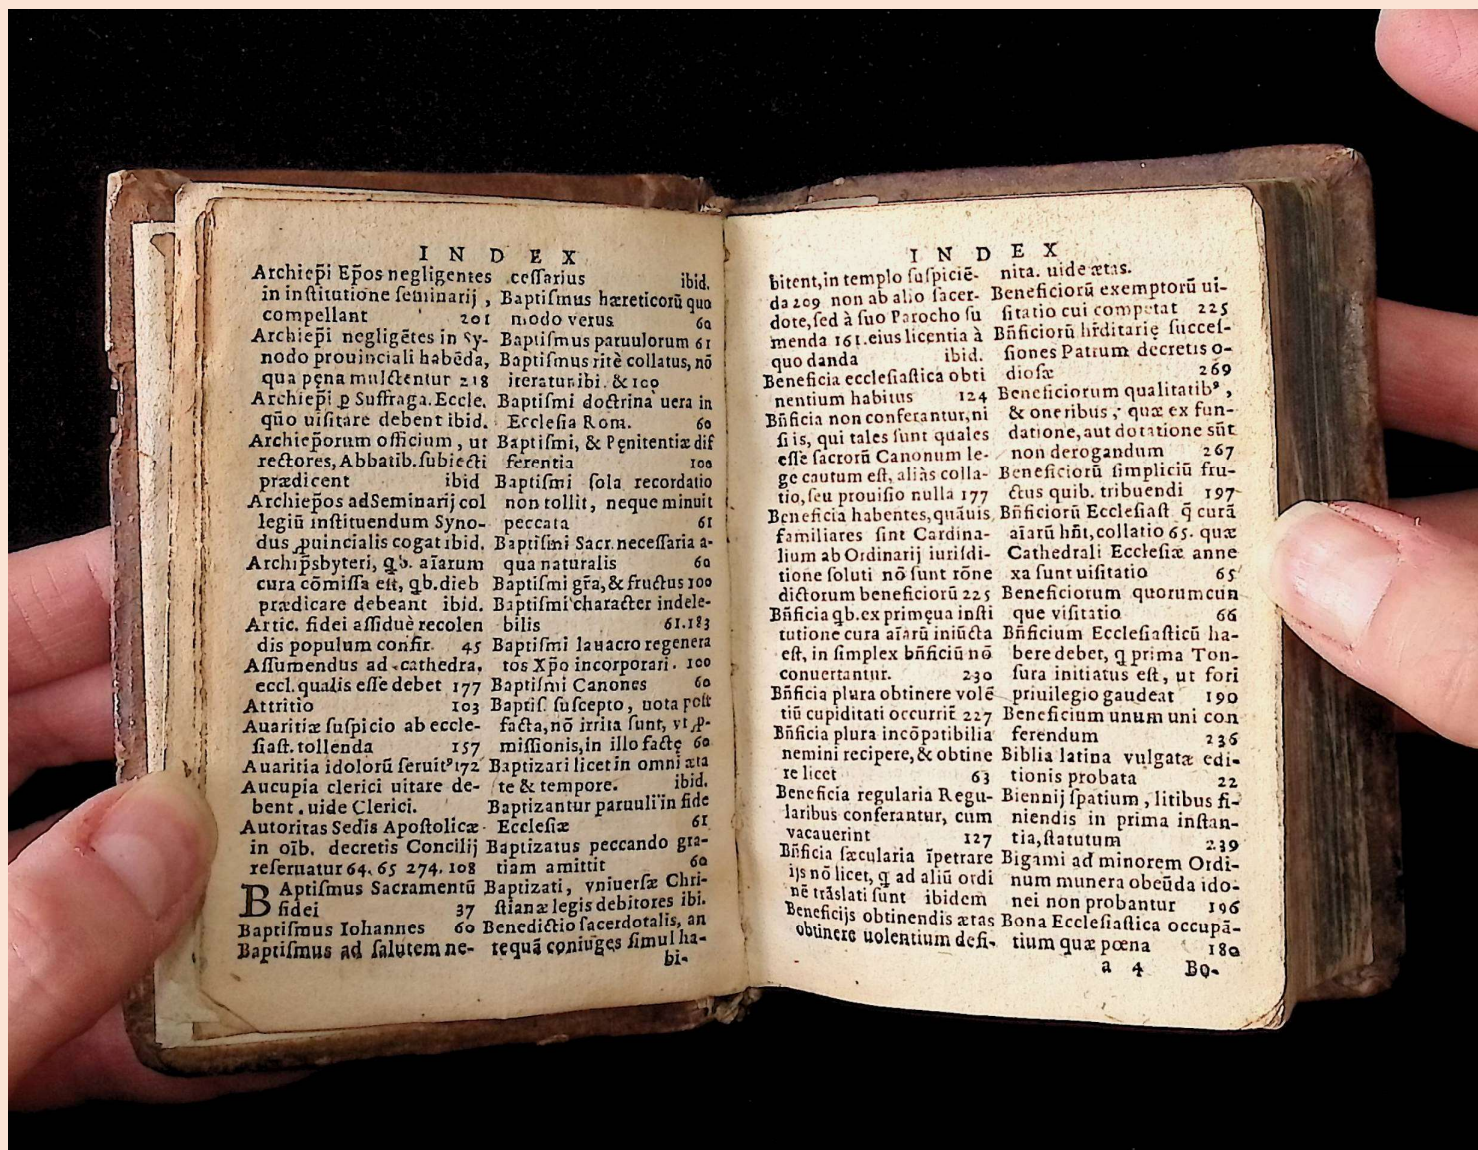 INDEX
Archiep̃i Ep̃os negligentes
in inſtitutione ſeminarij ,
compellant 201
Archiep̃i negligẽtes in ſy-
nodo prouinciali habẽda,
qua pęna mulctentur 218
Archiep̃i ꝓ Suffraga. Eccle.
qũo uiſitare debent ibid.
Archiep̃orum officium , ut
rectores, Abbatib. ſubiecti
prædicent ibid
Archiep̃os ad Seminarij col
legiũ inſtituendum Syno-
dus ꝓuincialis cogat ibid.
Archip̃sbyteri, qb. aĩarum
cura cõmiſſa eſt, qb. dieb
prædicare debeant ibid.
Artic. fidei aſſiduè recolen
dis populum confir. 45
Aſſumendus ad cathedra,
eccl. qualis eſſe debet 177
Attritio 103
Auaritiæ ſuſpicio ab eccle-
ſiaſt. tollenda 157
Auaritia idolorũ ſeruitꝰ 172
Aucupia clerici uitare de-
bent . uide Clerici.
Autoritas Sedis Apoſtolicæ
in oĩb. decretis Concilij
reſeruatur 64. 65 274. 108
BAptiſmus Sacramentũ
fidei 37
Baptiſmus Iohannes 60
Baptiſmus ad ſalutem ne-
ceſſarius ibid.
Baptiſmus hæreticorũ quo
modo verus 60
Baptiſmus paruulorum 61
Baptiſmus ritè collatus, nõ
iteratur. ibi. & 100
Baptiſmi doctrina uera in
Eccleſia Rom. 60
Baptiſmi, & Pęnitentiæ dif
ferentia 100
Baptiſmi ſola recordatio
non tollit, neque minuit
peccata 61
Baptiſmi Sacr. neceſſaria a-
qua naturalis 60
Baptiſmi gr̃a, & fructus 100
Baptiſmi character indele-
bilis 61.183
Baptiſmi lauacro regenera
tos Xp̃o incorporari . 100
Baptiſmi Canones 60
Baptiſ. ſuſcepto, uota poſt
facta, nõ irrita ſunt, vt ꝓ-
miſſionis, in illo factę 60
Baptizari licet in omni æta
te & tempore. ibid.
Baptizantur paruuli in fide
Eccleſiæ 61
Baptizatus peccando gra-
tiam amittit 60
Baptizati, vniuerſæ Chri-
ſtianæ legis debitores ibi.
Benedictio ſacerdotalis, an
tequã coniuges ſimul ha-
bi-
INDEX
bitent, in templo ſuſpiciẽ-
da 209 non ab alio ſacer-
dote, ſed à ſuo Parocho ſu
menda 161. eius licentia à
quo danda ibid.
Beneficia eccleſiaſtica obti
nentium habitus 124
Bñficia non conferantur, ni
ſi is, qui tales ſunt quales
eſſe ſacrorũ Canonum le-
ge cautum eſt, aliàs colla-
tio, ſeu prouiſio nulla 177
Beneficia habentes, quãuis
familiares ſint Cardina-
lium ab Ordinarij iuriſdi-
tione ſoluti nõ ſunt rõne
dictorum beneficiorũ 225
Bñficia qb. ex primęua inſti
tutione cura aĩarũ iniũcta
eſt, in ſimplex bñficiũ nõ
conuertantur. 230
Bñficia plura obtinere volẽ
tiũ cupiditati occurrit̃ 227
Bñficia plura incõpatibilia
nemini recipere, & obtine
re licet 63
Beneficia regularia Regu-
laribus conferantur, cum
vacauerint 127
Bñficia ſæcularia ĩpetrare
ijs nõ licet, q ad aliũ ordi
nẽ trãslati ſunt ibidem
Beneficijs obtinendis ætas
obtinere uolentium defi-
nita. uide ætas.
Beneficiorũ exemptorũ ui-
ſitatio cui competat 225
Bñficiorũ hr̃ditarię ſucceſ-
ſiones Patrum decretis o-
dioſæ 269
Beneficiorum qualitatibꝰ ,
& oneribus , quæ ex fun-
datione, aut dotatione sũt
non derogandum 267
Beneficiorũ ſimpliciũ fru-
ctus quib. tribuendi 197
Bñficiorũ Eccleſiaſt q̃ curã
aiarũ hñt, collatio 65. quæ
Cathedrali Eccleſiæ anne
xa ſunt uiſitatio 65
Beneficiorum quorumcun
que viſitatio 66
Bñficium Eccleſiaſticũ ha-
bere debet, q prima Ton-
ſura initiatus eſt, ut fori
priuilegio gaudeat 190
Beneficium unum uni con
ferendum 236
Biblia latina vulgatæ edi-
tionis probata 22
Biennij ſpatium , litibus fi-
niendis in prima inſtan-
tia, ſtatutum 239
Bigami ad minorem Ordi-
num munera obeũda ido-
nei non probantur 196
Bona Eccleſiaſtica occupã-
tium quæ pœna 180
a 4 Bo-